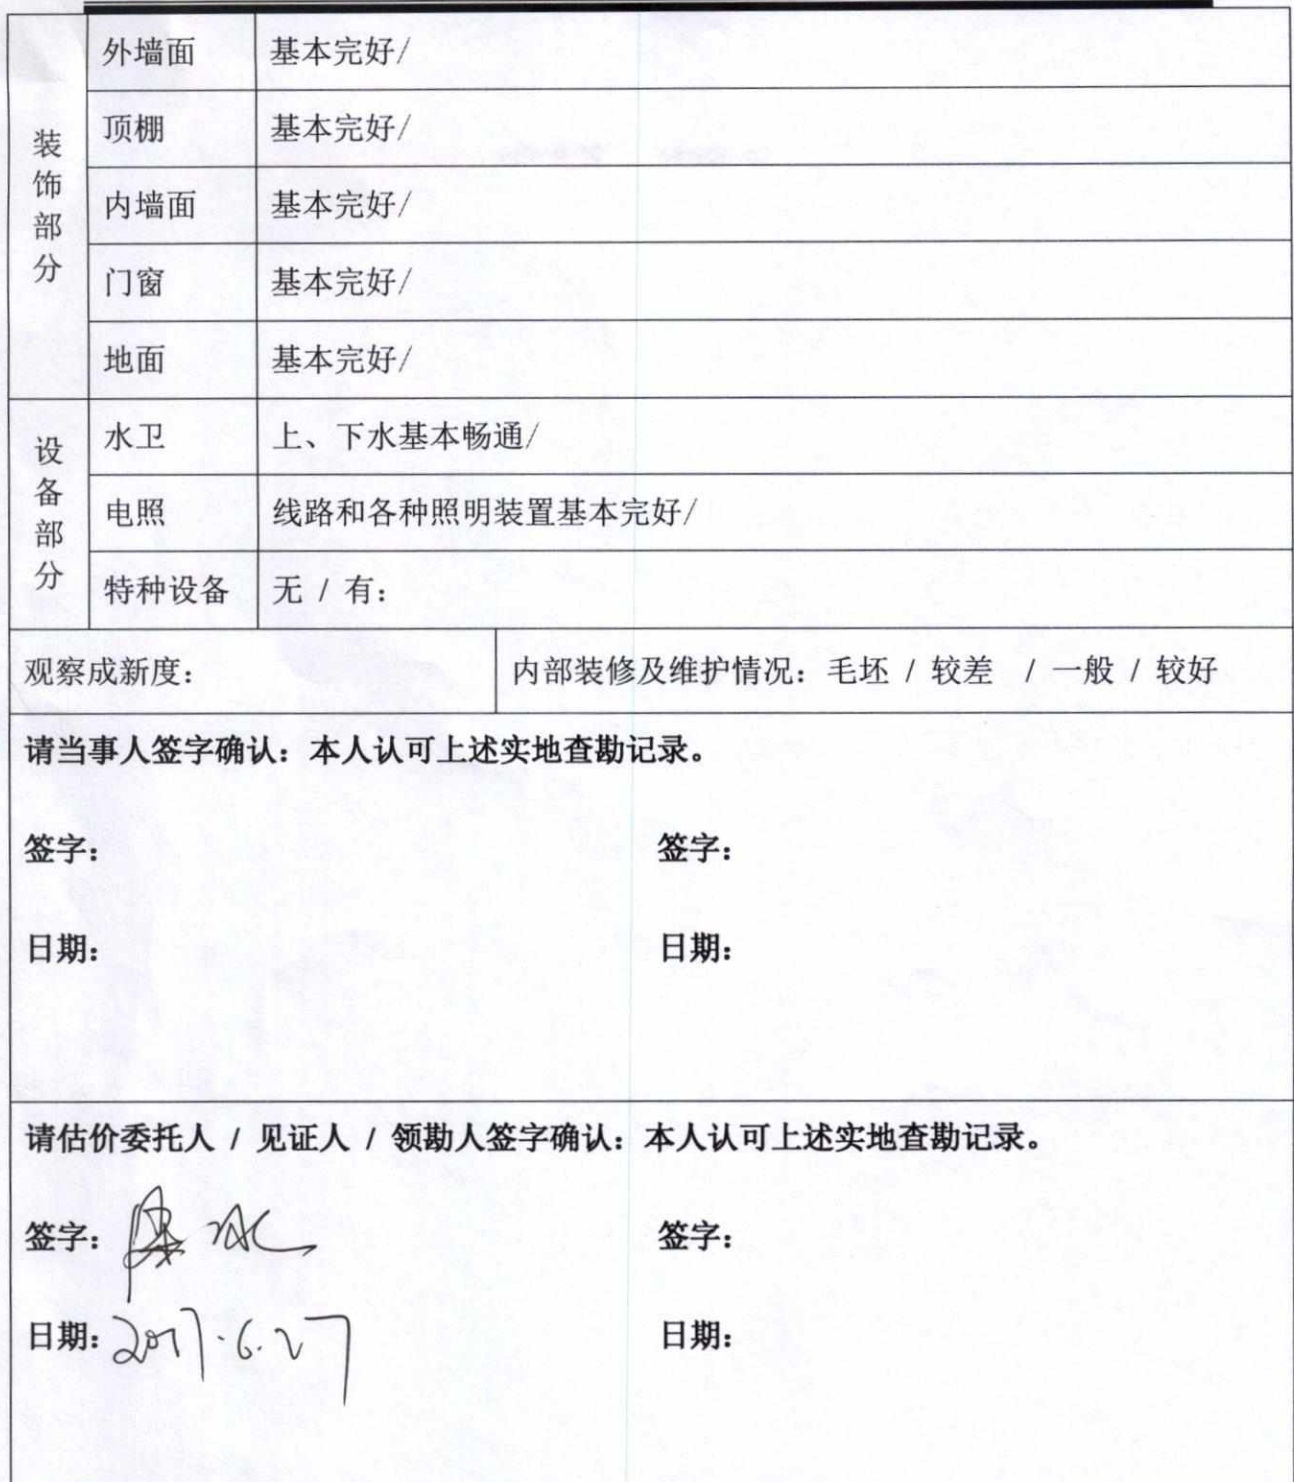 装饰部分
外墙面 基本完好/
顶棚 基本完好/
内墙面 基本完好/
门窗 基本完好/
地面 基本完好/
设备部分
水卫 上、下水基本畅通/
电照 线路和各种照明装置基本完好/
特种设备 无 / 有：
观察成新度： 内部装修及维护情况：毛坯 / 较差 / 一般 / 较好
请当事人签字确认：本人认可上述实地查勘记录。
签字： 签字：
日期： 日期：
请估价委托人 / 见证人 / 领勘人签字确认：本人认可上述实地查勘记录。
签字： 签字：
日期：2017.6.27 日期：